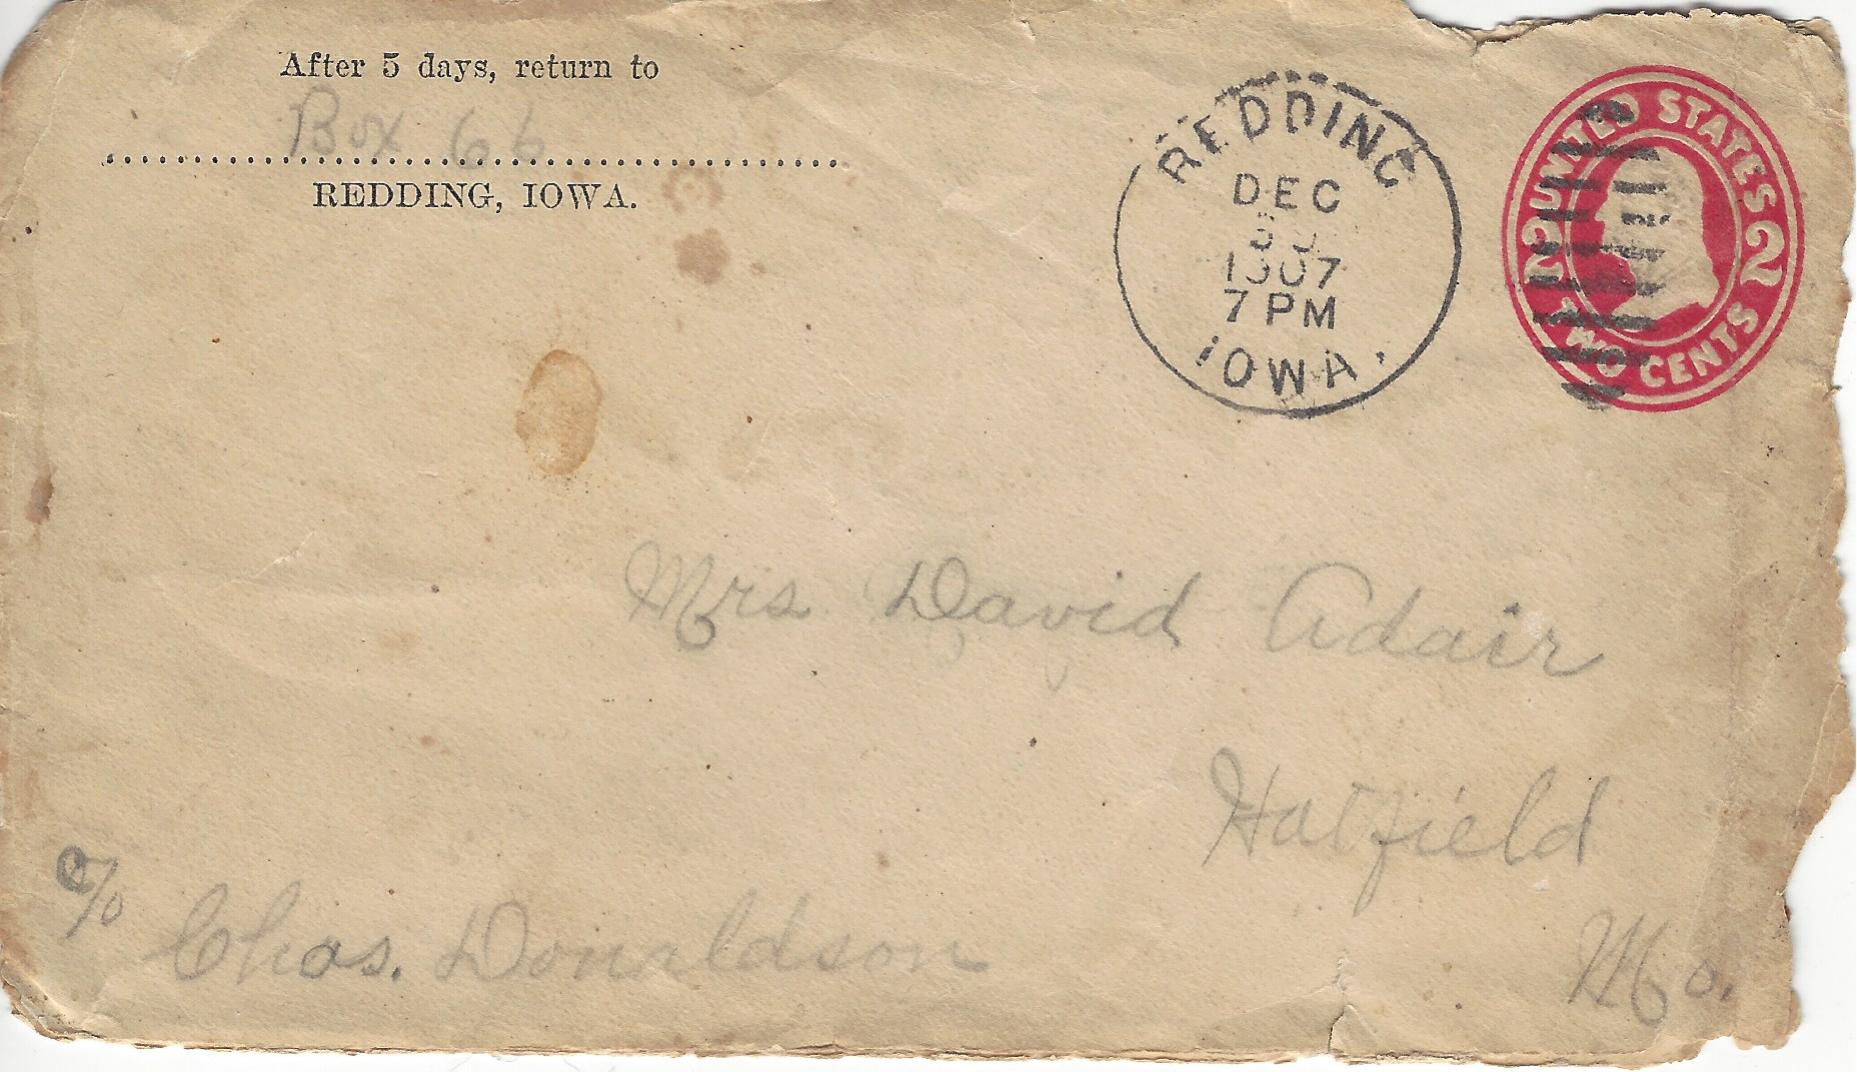 After 5 days, return to
Box 66
REDDING, IOWA.
REDDING
DEC
30
1907
7 PM
IOWA.
UNITED STATES
2 2
TWO CENTS
Mrs David Adair
Hatfield
Mo.
c/o
Chas. Donaldson